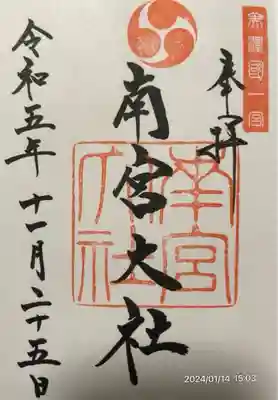 美濃國一宮
奉拝
南宮大社
南宮大社
令和五年十一月二十五日
2024/01/14 15:03